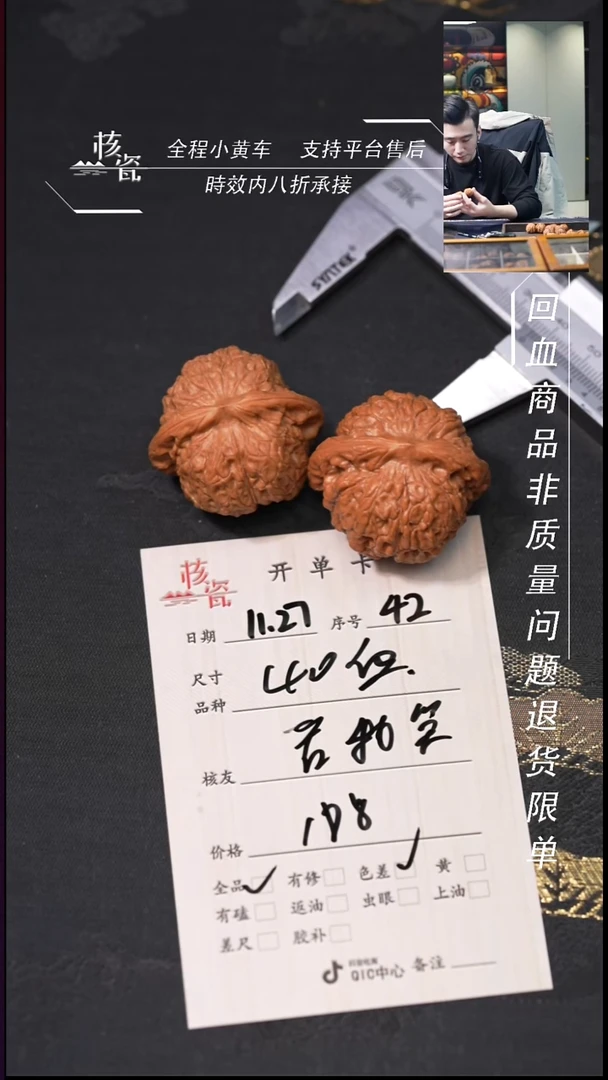 核瓷
全程小黄车 支持平台售后
時效内八折承接
SYNTEK
回血商品非质量问题退货限单
核瓷
开单卡
日期 11.27 序号 42
尺寸 40位.
品种
核友
价格 198
全品 有修 色差 黄
有磕 返油 虫眼 上油
差尺 胶补
QIC中心 备注